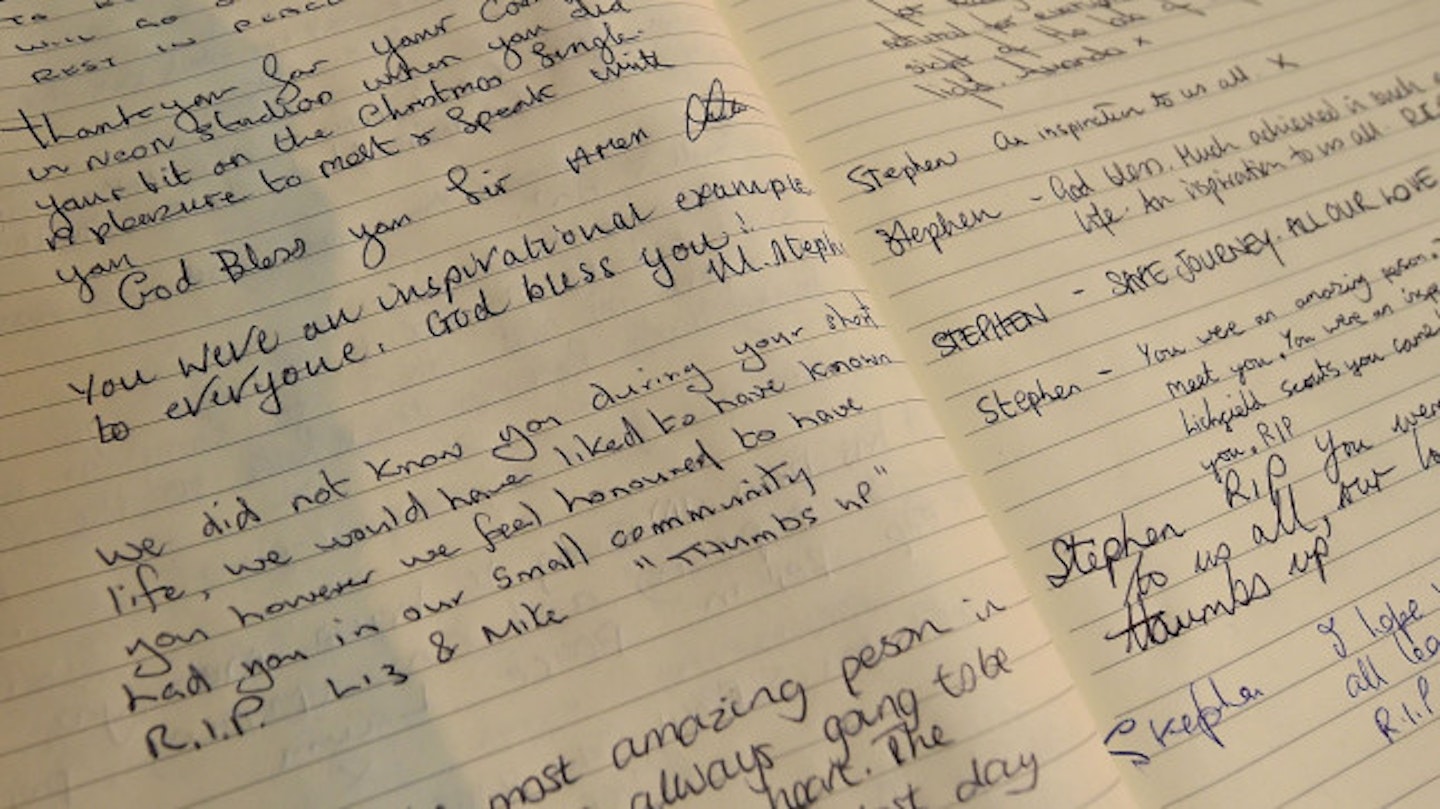 REST IN PEACE
Thank you for your
in Neon Studios when you did
your bit on the Christmas Single.
A pleazure to meet & Speak with
you
God Bless you Sir
You were an inspirational example
to everyone. God bless you!
M. Steph
We did not know you during your short
life, we would have liked to have known
you however we feel honoured to have
had you in our small community
R.I.P. Liz & Mike "Thumbs up"
most amazing peson in
always going to be
heart. The
day
sight of the
Stephen An inspiration to us all. x
Stephen - God bless. Much achieved in such
life. An ispiration to us all.
STEPHEN - SAFE JOURNEY. ALL OUR LOVE
Stephen - You were an amazing person.
meet you. You were an
Lichfield scouts you came
you. RIP
Stephen RIP You were
to us all, our
thumbs up
Stephen I hope
all
R.I.P